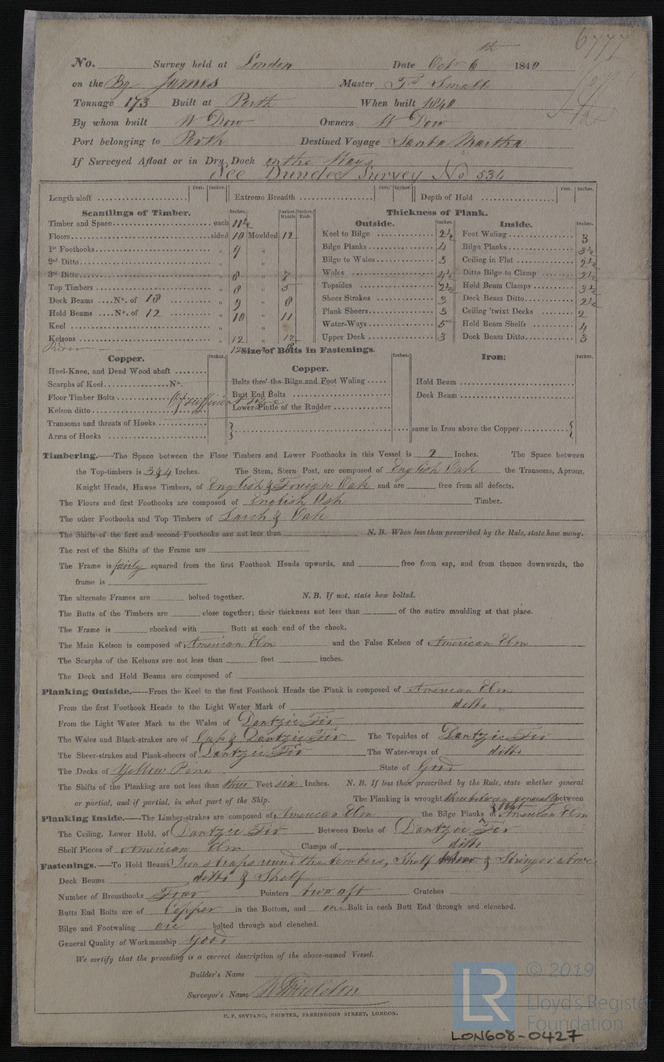 6777
No. Survey held at London Date Oct 6th 1840
on the Bg James Master Ts Small
Tonnage 173 Built at Perth When built 1840
By whom built W Dow Owners W Dow
Port belonging to Perth Destined Voyage Santa Martha
If Surveyed Afloat or in Dry Dock on the Ways
See Dundee Survey No 534
Feet. Inches. Feet. Inches. Feet. Inches.
Length aloft Extreme Breadth Depth of Hold
Scantlings of Timber. Thickness of Plank.
Outside. Inside.
Timber and Space each 11½
Floors sided 10 Moulded 12
1st Foothooks 9
2nd Ditto
3rd Ditto 8 7
Top Timbers 8 5
Deck Beams No. of 18 9 8
Hold Beams No. of 12 10 11
Keel
Kelsons 12 12
Keel to Bilge 2½
Bilge Planks 4
Bilge to Wales 3
Wales 4½
Topsides 2½
Sheer Strakes 3
Plank Sheers 3
Water-Ways 5
Upper Deck 3
Foot Waling 3
Bilge Planks 3½
Ceiling in Flat 2½
Ditto Bilge to Clamp 2½
Hold Beam Clamps 3½
Deck Beam Ditto 2½
Ceiling 'twixt Decks 2
Hold Beam Shelfs 4
Deck Beam Ditto 3
Size of Bolts in Fastenings.
Copper. Copper. Iron.
Heel-Knee, and Dead Wood abaft
Scarphs of Keel No.
Floor Timber Bolts Of sufficient size
Kelson ditto
Transoms and throats of Hooks
Arms of Hooks
Bolts thro' the Bilge and Foot Waling
Butt End Bolts
Lower Pintle of the Rudder
Hold Beam
Deck Beam
same in Iron above the Copper
Timbering.—The Space between the Floor Timbers and Lower Foothooks in this Vessel is 2 Inches. The Space between
the Top-timbers is 3 & 4 Inches. The Stem, Stern Post, are composed of English Oak the Transoms, Aprons,
Knight Heads, Hawse Timbers, of English & Foreign Oak and are free from all defects.
The Floors and first Foothooks are composed of English Oak Timber.
The other Foothooks and Top Timbers of Larch & Oak
The Shifts of the first and second Foothooks are not less than N.B. When less than prescribed by the Rule, state how many.
The rest of the Shifts of the Frame are
The Frame is fairly squared from the first Foothook Heads upwards, and free from sap, and from thence downwards, the
frame is
The alternate Frames are bolted together. N.B. If not, state how bolted.
The Butts of the Timbers are close together; their thickness not less than of the entire moulding at that place.
The Frame is chocked with Butt at each end of the chock.
The Main Kelson is composed of American Elm and the False Kelson of American Elm
The Scarphs of the Kelsons are not less than feet inches.
The Deck and Hold Beams are composed of
Planking Outside.—From the Keel to the first Foothook Heads the Plank is composed of American Elm
From the first Foothook Heads to the Light Water Mark of ditto
From the Light Water Mark to the Wales of Dantzic Fir
The Wales and Black-strakes are of Oak & Dantzic Fir The Topsides of Dantzic Fir
The Sheer-strakes and Plank-sheers of Dantzic Fir The Water-ways of ditto
The Decks of Yellow Pine State of Good
The Shifts of the Planking are not less than three Feet six Inches. N.B. If less than prescribed by the Rule, state whether general
or partial, and if partial, in what part of the Ship. The Planking is wrought three between generally between
Planking Inside.—The Limber-strakes are composed of American Elm the Bilge Planks of American Elm
The Ceiling, Lower Hold, of Dantzic Fir Between Decks of Dantzic Fir
Shelf Pieces of American Elm Clamps of ditto
Fastenings.—To Hold Beams Iron straps round the timbers, Shelf & Stringer above
Deck Beams ditto & Shelf
Number of Breasthooks Four Pointers two aft Crutches
Butts End Bolts are of Copper in the Bottom, and one Bolt in each Butt End through and clenched.
Bilge and Footwaling are bolted through and clenched.
General Quality of Workmanship good
We certify that the preceding is a correct description of the above-named Vessel.
Builder's Name
Surveyor's Name
C. F. SEYFANG, PRINTER, FARRINGDON STREET, LONDON.
LR © 2019
Lloyd's Register
Foundation
LON608-0427